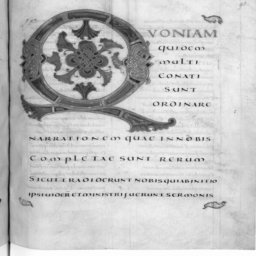 QUONIAM
QUIDEM
MULTI
CONATI
SUNT
ORDINARE
NARRATIONEM QUAE IN NOBIS
COMPLETAE SUNT RERUM
SICUT TRADIDERUNT NOBIS QUI AB INITIO
IPSI VIDERUNT ET MINISTRI FUERUNT SERMONIS